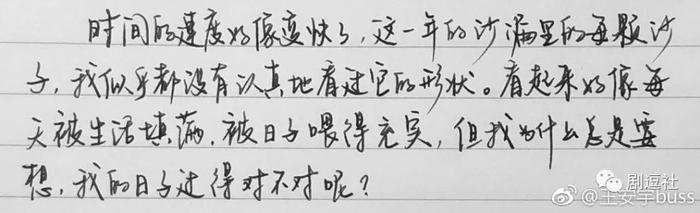 时间的速度好像变快了，这一年的沙漏里的每颗沙
子，我似乎都没有认真地看过它的形状。看起来好像每
天被生活填满，被日子喂得充实，但我为什么总是要
想，我的日子过得对不对呢？
剧逗社
@王安宇buss